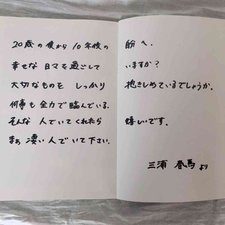 20歳の僕から10年後の 僕へ。
幸せな日々を過ごして いますか?
大切なものを しっかり 抱きしめているでしょうか。
何事も全力で臨んでいる。
そんな人でいてくれたら 嬉しいです。
凄い人でいて下さい。
三浦春馬より